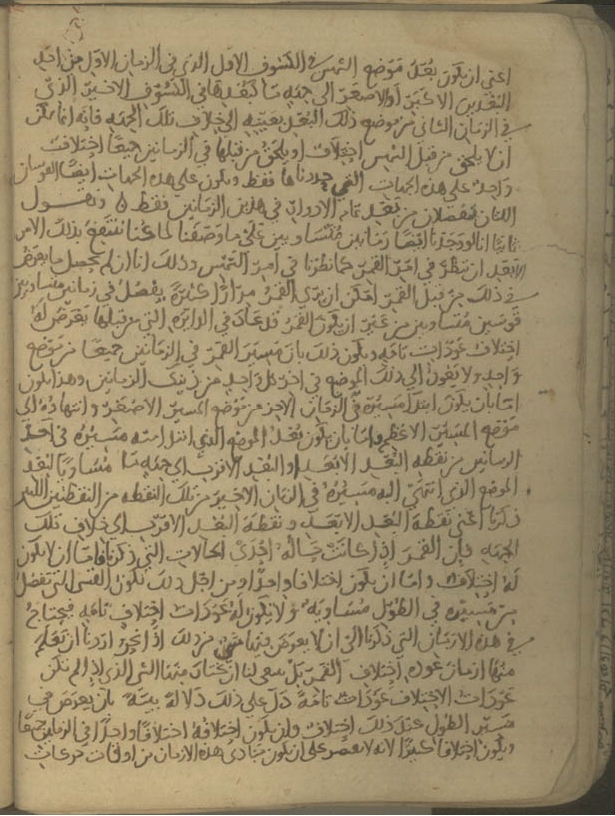 اعني ان يكون بعد موضع الشمس في الكسوف الاول الذي في الزمان الاول من احد
البعدين الاكبر او الاصغر الى جهة ما كبعدها في الكسوف الاخير الذي
في الزمان الثاني من موضع ذلك البعد بعينه الى خلاف تلك الجهة فانه انما يمكن
ان لا يلحق من قبل الشمس اختلاف او يلحق من قبلها في الزمانين جميعا اختلاف
واحد على هذه الجهات التي حددناها فقط ويكون على هذه الجهات ايضا القوسان
اللتان تفضلان من بعد تمام الادوار في هذين الزمانين فقط ونقول
ثانيا انا لو وجدنا ايضا زمانين متساويين على ما وصفنا لما كنا ننتفع بذلك الامر
الا بعد ان ننظر في امر القمر كما نظرنا في امر الشمس وذلك انا ان لم نحصل ما يعرض
في ذلك من قبل القمر امكن ان يرى القمر مرارا كثيرة يفضل في زمانين متساويين
قوسين متساويين من غير ان يكون القمر قد عاد في الدائرة التي من قبلها يعرض له
اختلاف عودات تامة ويكون ذلك بان مسير القمر في الزمانين جميعا من موضع
واحد ولا يعود الى ذلك الموضع في اخر كل واحد من ذينك الزمانين وهذا يكون
اما بان يكون ابتدا مسيره في الزمان الاخر من موضع المسير الاصغر وانتهاؤه الى
موضع المسير الاعظم واما بان يكون بعد الموضع الذي ابتدا منه مسيره في احد
الزمانين من نقطة البعد الابعد او البعد الاقرب الى جهة ما مساويا لبعد
الموضع الذي انتهى اليه مسيره في الزمان الاخير من تلك النقطة من النقطتين اللتين
ذكرنا اعني نقطة البعد الابعد ونقطة البعد الاقرب الى خلاف تلك
الجهة فان القمر اذا كانت حاله احدى الحالات التي ذكرنا فاما ان لا يكون
له اختلاف واما ان يكون اختلافا واحدا ومن اجل ذلك تكون القسي التي تفضل
من مسيره في الطول متساوية ولا يكون له عودات اختلاف تامة فيحتاج
في هذه الازمان التي ذكرنا الى ان لا يعرض فيها شي من ذلك اذا نحن اردنا ان نعلم
منها ازمان عودة اختلاف القمر بل ينبغي لنا ان نختار منها الشي الذي اذا لم تكن
عودات الاختلاف عودات تامة دل على ذلك دلالة بينة بان يعرض في
مسير الطول عند ذلك اختلاف وان يكون اختلافه اختلافا واحدا في الزمانين جميعا
ويكون اختلافا كبيرا لانه لا يقتصر على ان يكون مبادئ هذه الازمان من اوقات حركات